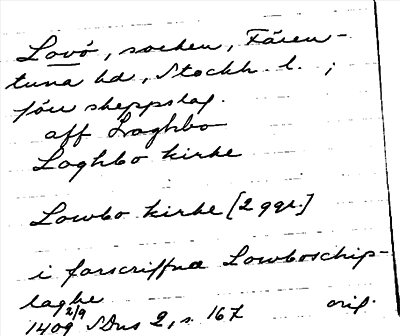 Lovö, socken, Fären-
tuna hd, Stockh. l. ;
förr skeppslag.
aff Laghbo
Laghbo kirke
Lowbo kirke [2 ggr.]
i forscriffna Lowboschip-
laghe
1409 2/9 SDns 2, s. 167 orig.